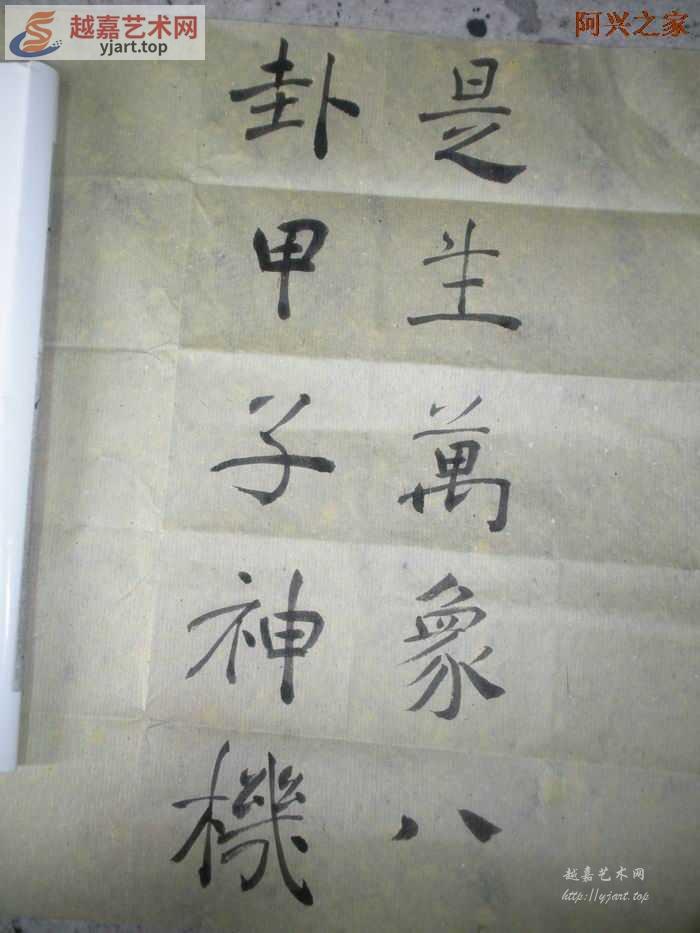 越嘉艺术网
yjart.top
阿兴之家
是生萬象八
卦甲子神機
越嘉艺术网
http://yjart.top